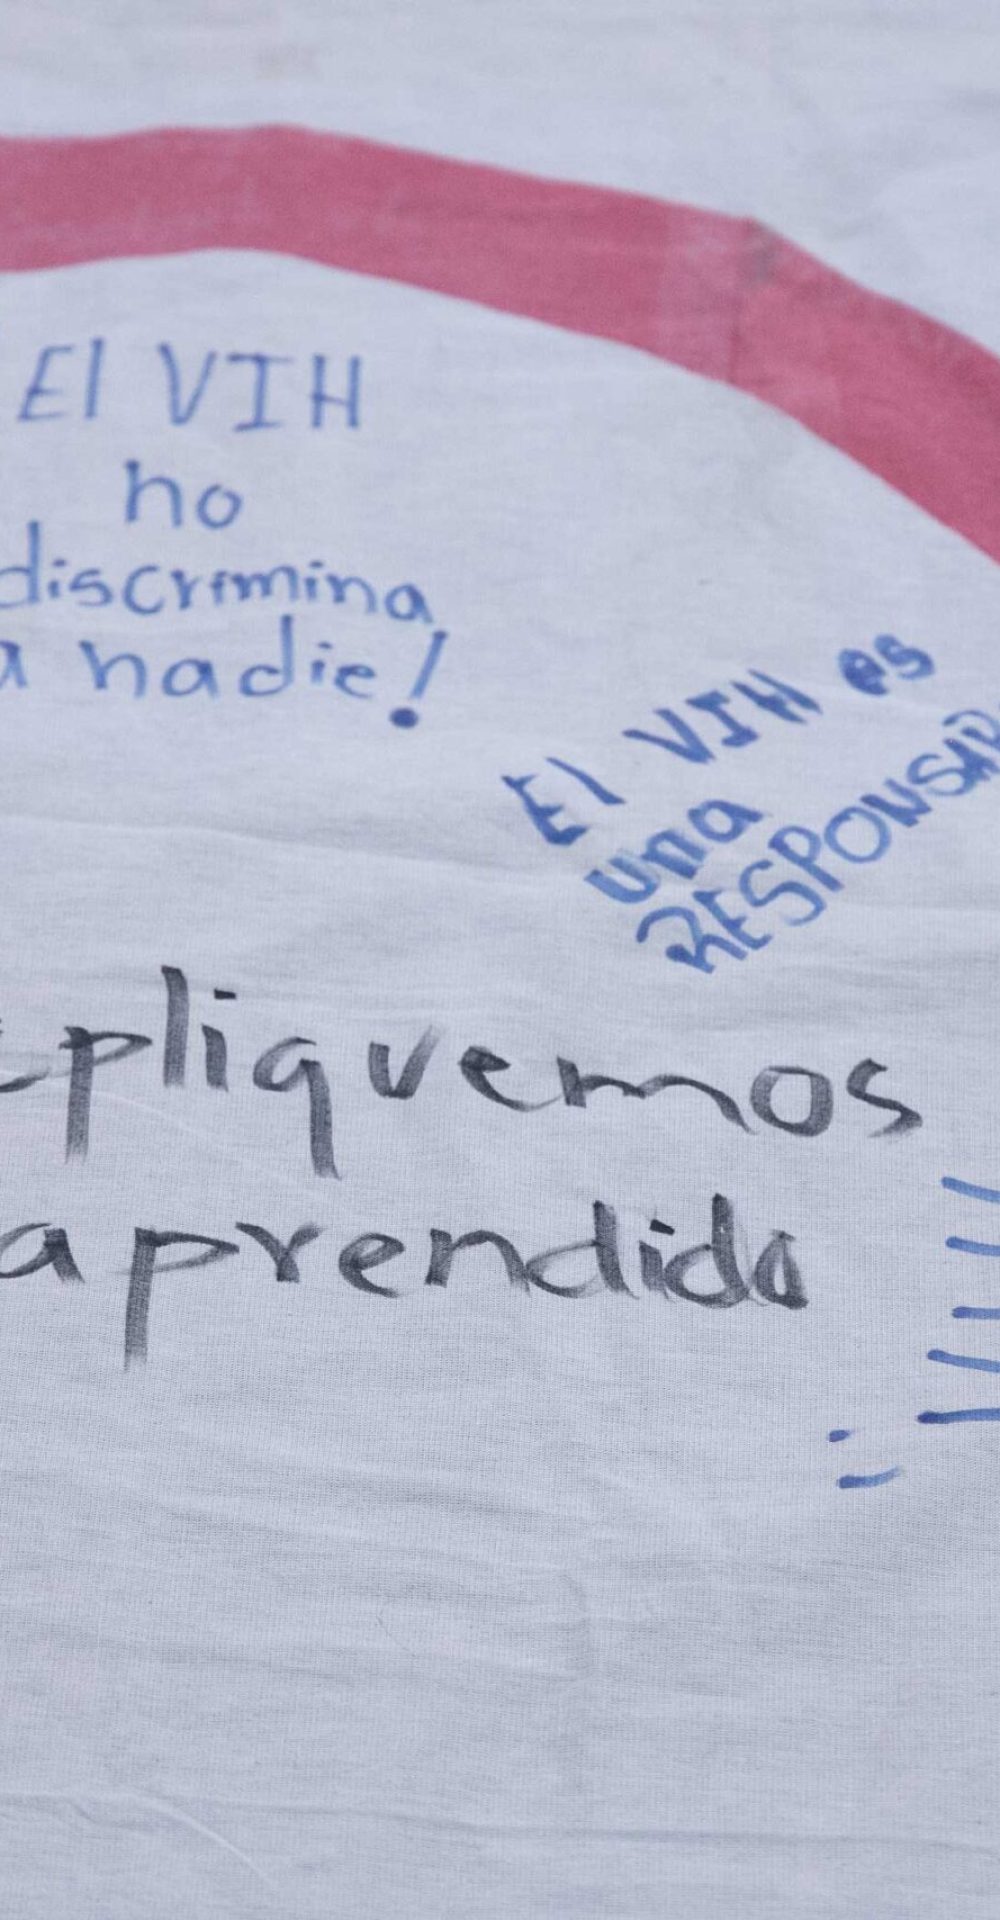 El VIH
no
discrimina
a nadie!
El VIH es
una
RESPONSAB
epliquemos
aprendido